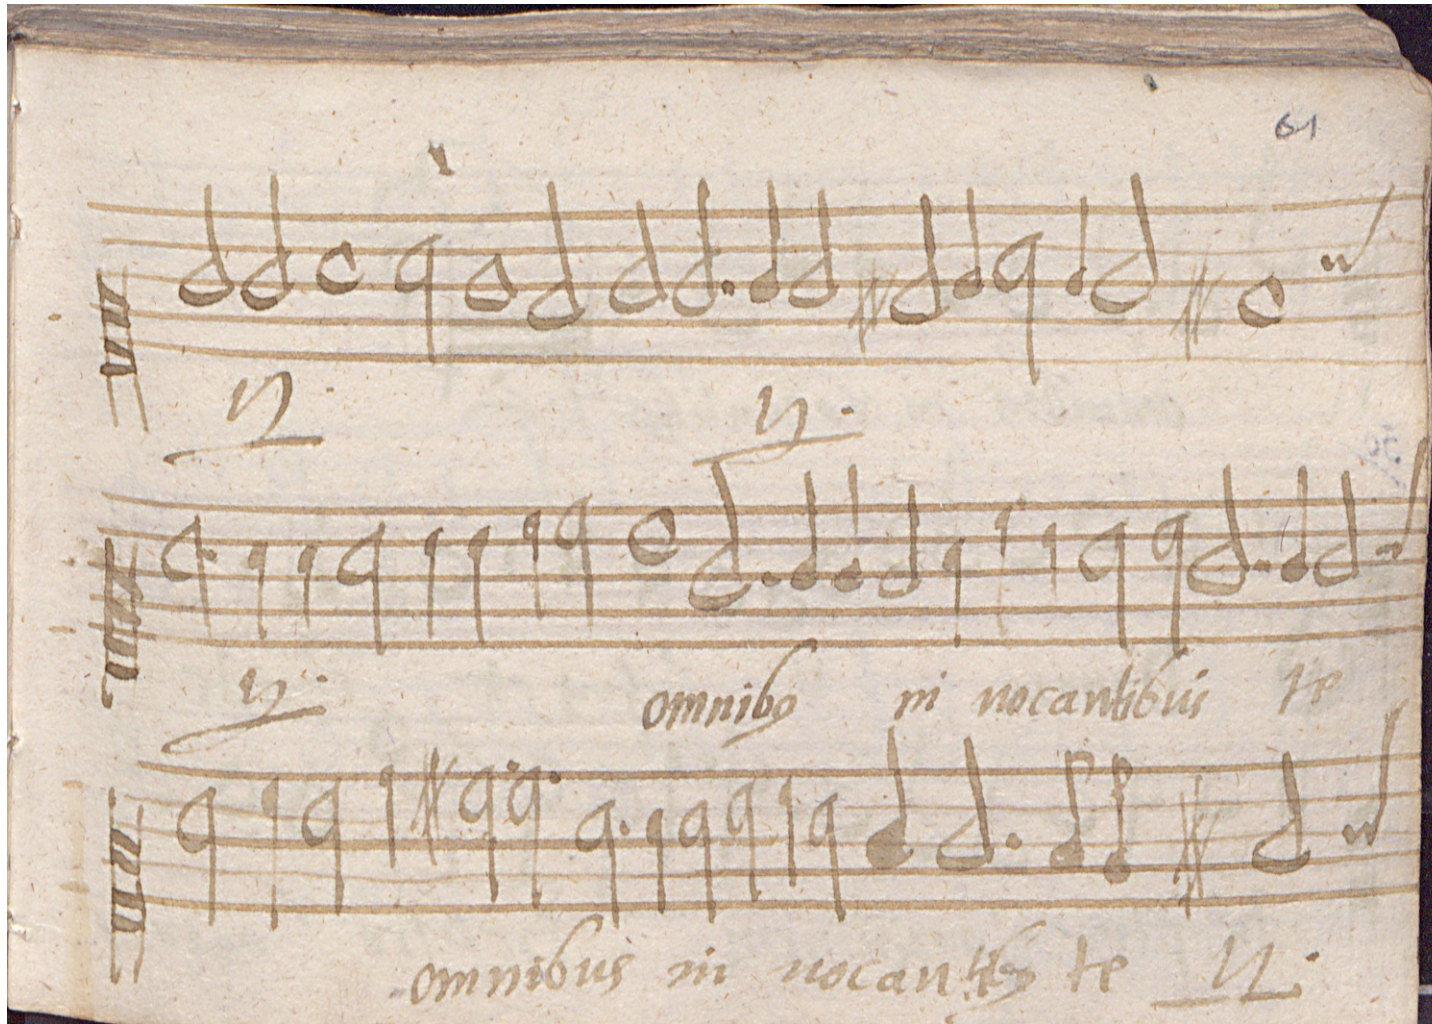 61
ij ij.
ij. omnibq in uocantibus te
omnibus in uocantibq te ij.